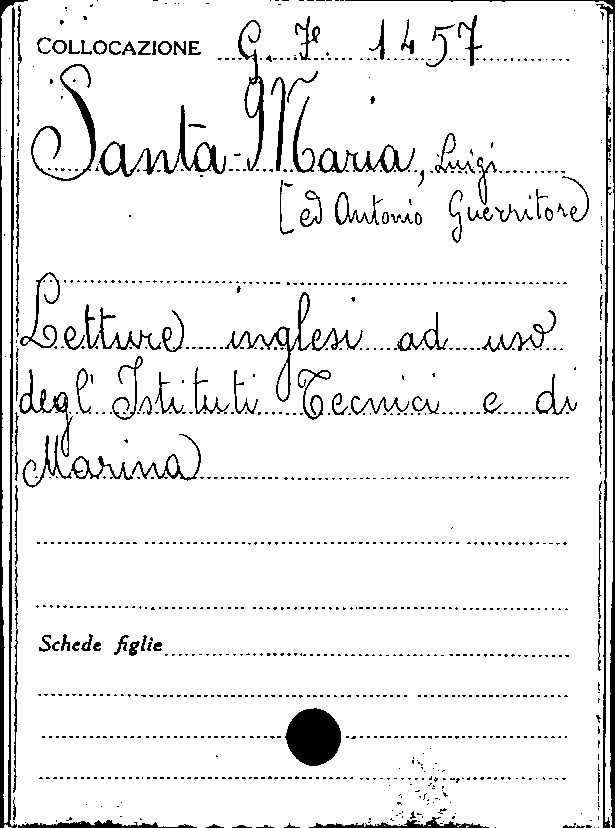 COLLOCAZIONE G. F. 1457
Santa-Maria, Luigi
[ed Antonio Guerritore
Letture inglesi ad uso
degl' Istituti Tecnici e di
Marina
Schede figlie